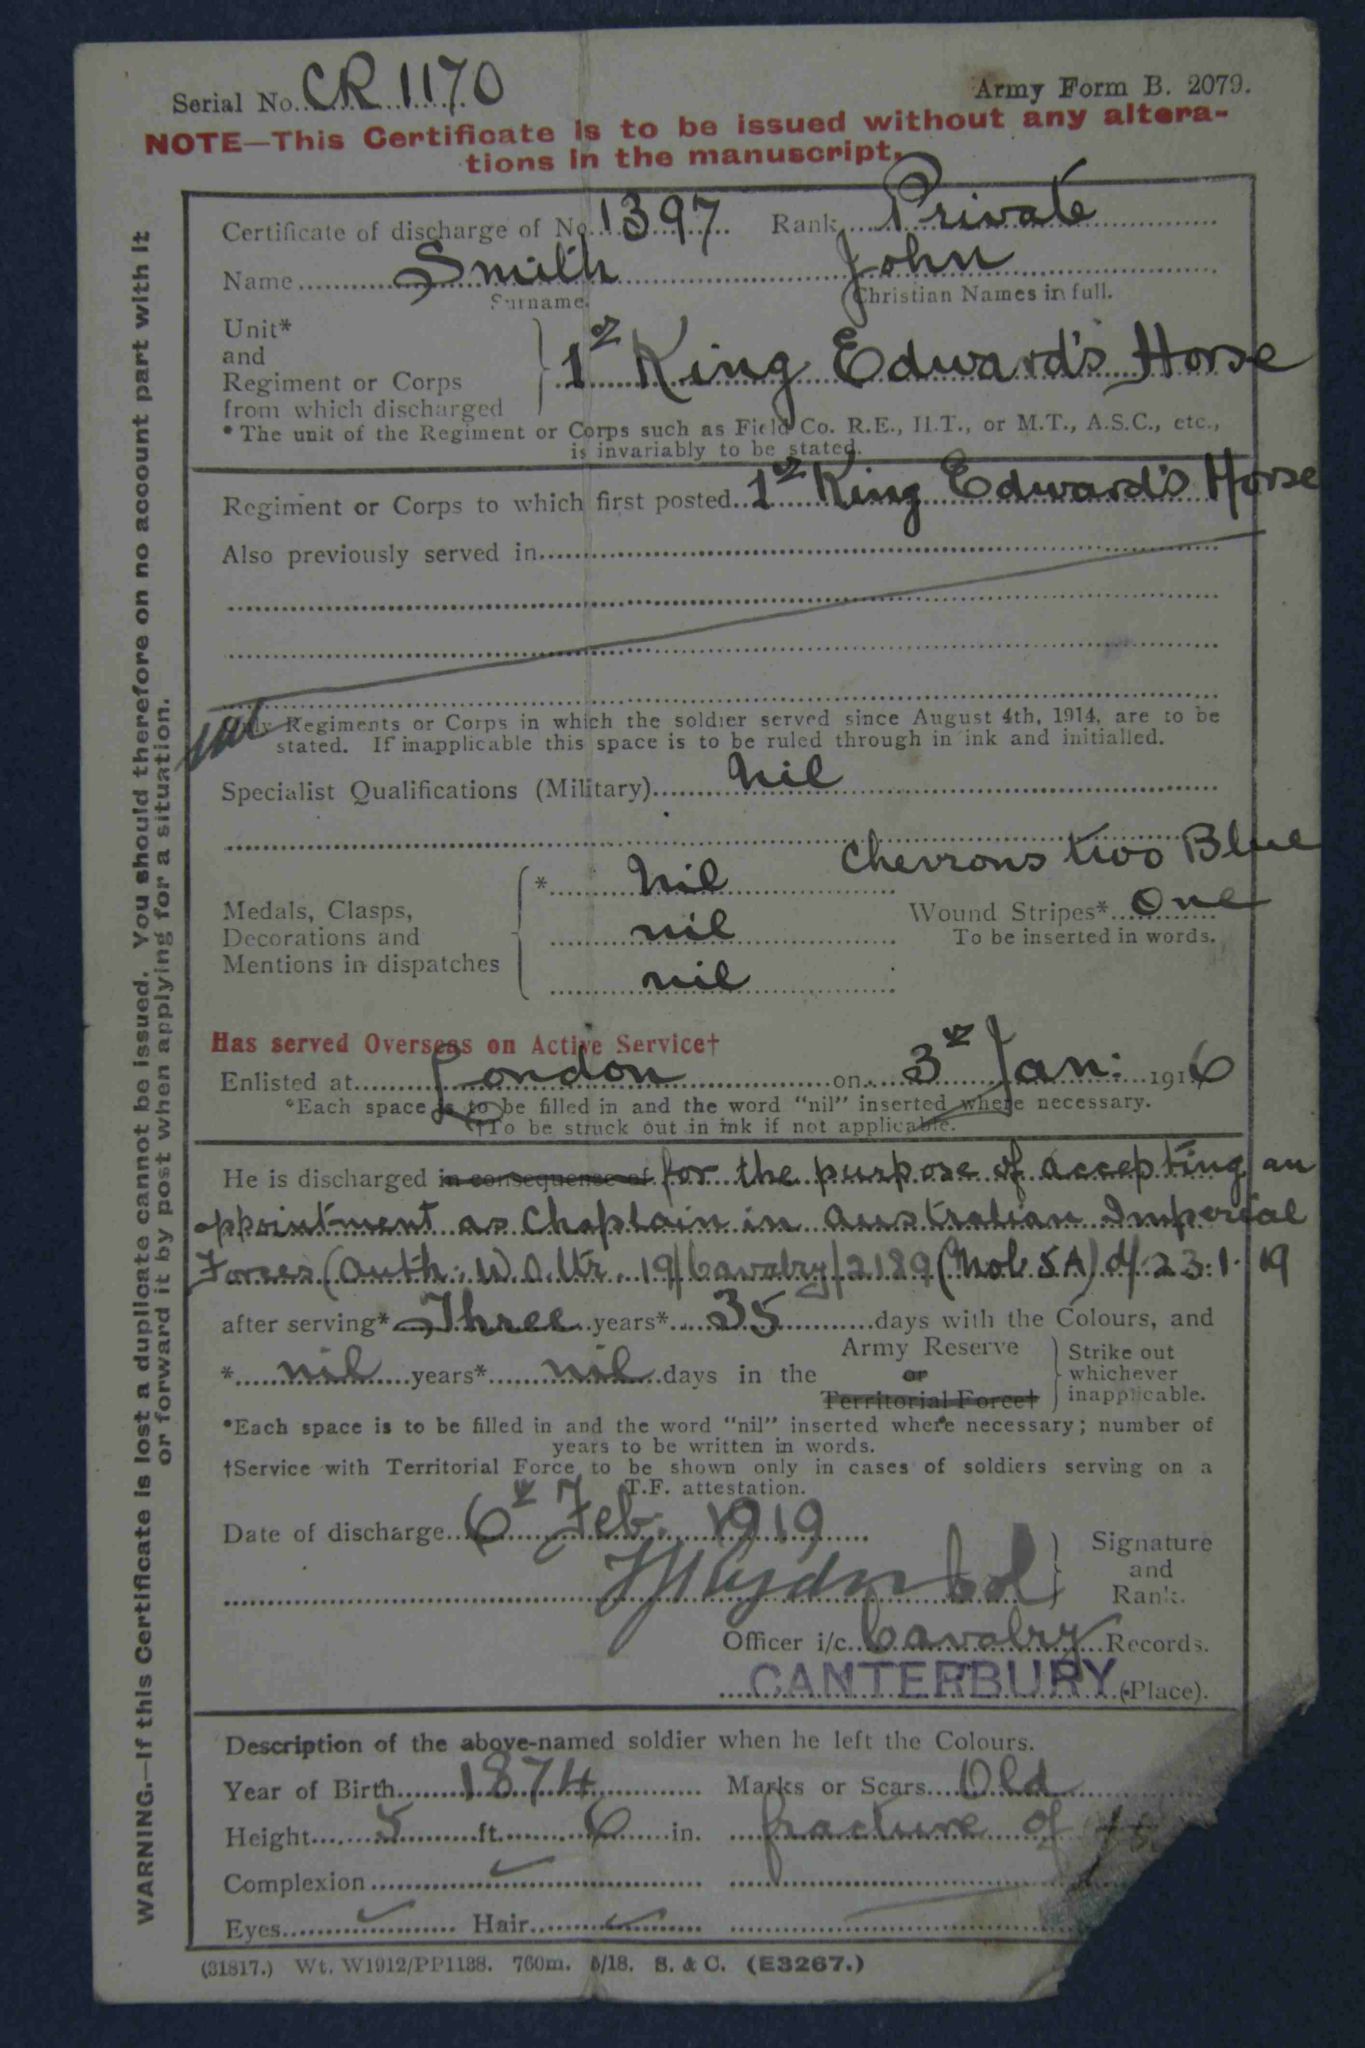 Serial No. CR 1170
Army Form B. 2079.
NOTE—This Certificate is to be issued without any altera-
tions in the manuscript.
Certificate of discharge of No. 1397 Rank Private
Name Smith John
Surname. Christian Names in full.
Unit*
and
Regiment or Corps
from which discharged
1st King Edward's Horse
*The unit of the Regiment or Corps such as Field Co. R.E., H.T., or M.T., A.S.C., etc.,
is invariably to be stated.
Regiment or Corps to which first posted 1st King Edward's Horse
Also previously served in
Only Regiments or Corps in which the soldier served since August 4th, 1914, are to be
stated. If inapplicable this space is to be ruled through in ink and initialled.
Specialist Qualifications (Military) Nil
Chevrons two Blue
Medals, Clasps,
Decorations and
Mentions in dispatches
* Nil
nil
nil
Wound Stripes* One
To be inserted in words.
Has served Overseas on Active Service†
Enlisted at London on 3rd Jan: 1916
*Each space is to be filled in and the word "nil" inserted where necessary.
†To be struck out in ink if not applicable.
He is discharged in consequence of for the purpose of accepting an
appointment as Chaplain in Australian Imperial
Forces (Auth: W.O. ltr. 19/Cavalry/2189 (Mob 5A) d/ 23.1.19
after serving* Three years* 35 days with the Colours, and
* nil years* nil days in the Army Reserve
or
Territorial Force†
Strike out
whichever
inapplicable.
*Each space is to be filled in and the word "nil" inserted where necessary; number of
years to be written in words.
†Service with Territorial Force to be shown only in cases of soldiers serving on a
T.F. attestation.
Date of discharge 6th Feb. 1919
Col
Signature
and
Rank.
Officer i/c Cavalry Records.
CANTERBURY. (Place).
Description of the above-named soldier when he left the Colours.
Year of Birth 1874 Marks or Scars Old
Height 5 ft. 6 in. fracture of
Complexion
Eyes Hair
(31817.) Wt. W1912/PP1138. 760m. 5/18. S. & C. (E3267.)
WARNING.—If this Certificate is lost a duplicate cannot be issued. You should therefore on no account part with it
or forward it by post when applying for a situation.